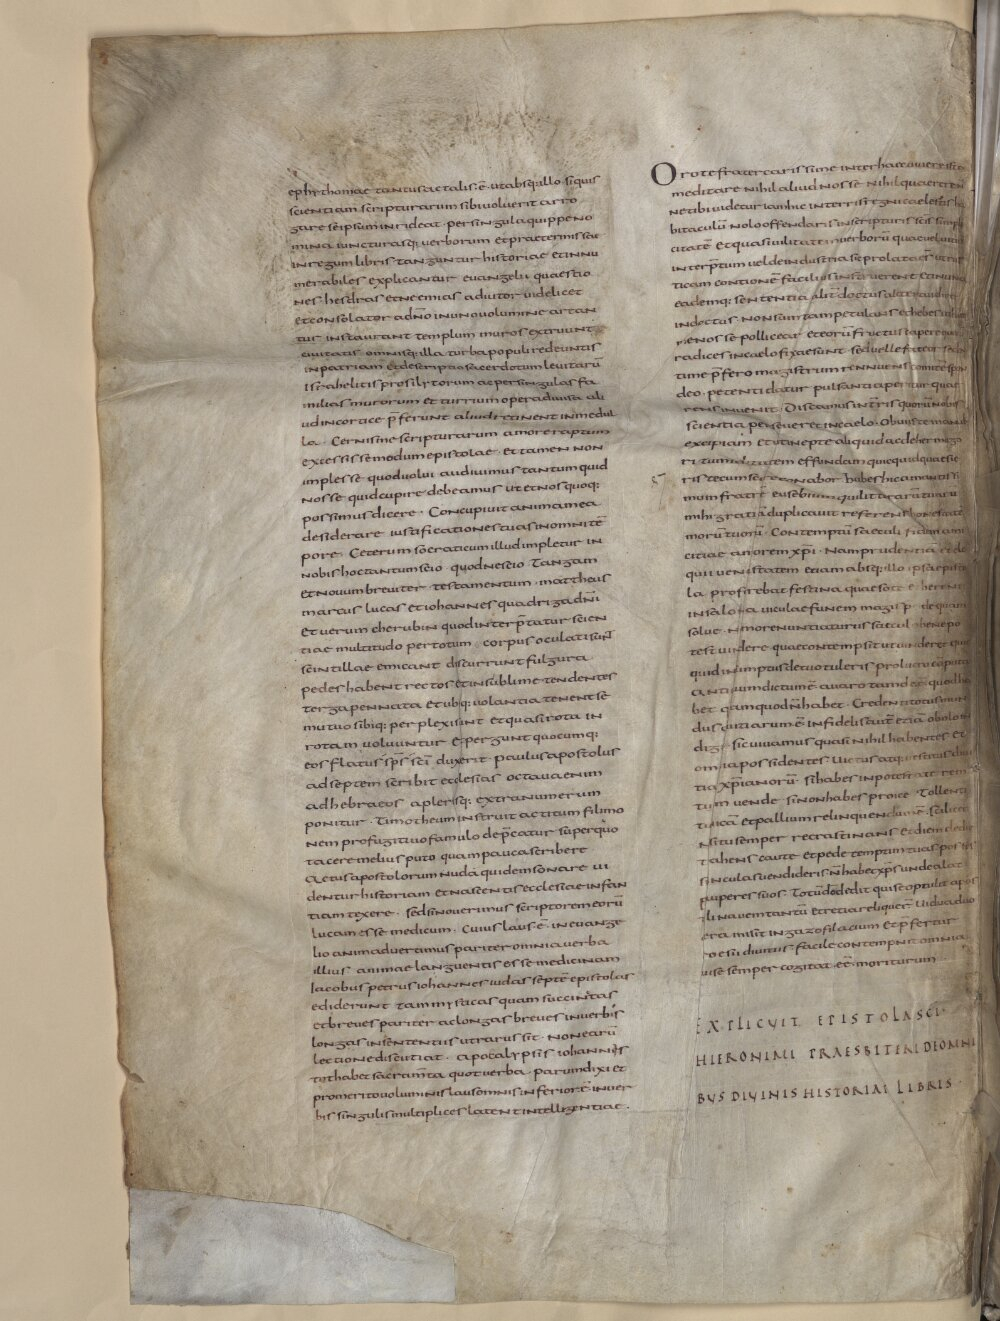 ephithomae tantus ac talis. ē. ut absq: illo siquis
scientiam scripturarum sibi voluerit arro
gare seipsum inrideat. per singula quippe no
mina iuncturasq: verborum et praetermissae
in regum libris tanguntur historiae et innu
merabiles explicantur evangelii quaestio
nes hesdras et neemias adiutor videlicet
et consolator ad dn̄o in uno volumine artan
tur instaurant templum muros extruunt
civitatis omnisq: illa turba populi redeuntis
in patriam et descriptio sacerdotum levitarū
israhelitis proselytorum ac per singulas fa
milias murorum et turrium opera divisa ali
ud in cortice p̄ferunt aliud retinent in medul
la. Cernis me scripturarum amore raptum
excessisse modum epistolae. et tamen non
implesse quod volui audivimus tantum quid
nosse quid cupire debeamus ut et nos quoq:
possimus dicere. Concupivit anima mea
desiderare iustificationes tuas in omni tē
pore. Ceterum socraticum illud impletur in
nobis hoc tantum scio. quod nescio Tangam
et novum breviter testamentum. mattheus
marcus lucas et iohannes quadriga dn̄i
et verum cherubin quod interp̄tatur scien
tiae multitudo per totum corpus oculeati sunt
scintillae emicant discurrunt fulgura
pedes habent rectos et in sublime tendentes
terga pennata et ubiq: volantia tenent se
mutuo sibiq: perplexi sunt et quasi rota in
rotam volvuntur et pergunt quocumq:
eos flatus sp̄s sc̄i duxerit paulus apostolus
ad septem scribit ecclesias octava enim
ad hebraeos a plerisq: extra numerum
ponitur. Timotheum instruit ac titum filimo
nem pro fugitivo famulo dep̄catur super quo
tacere melius puto quam pauca scribere
Actus apostolorum nuda quidem sonare vi
dentur historiam et nascentis ecclesiae infan
tiam texere. sed si noverimus scriptorem eorū
lucam esse medicum. Cuius laus. ē. in evange
lio animadvertimus pariter omnia verba
illius animae languentis esse medicinam
Iacobus petrus iohannes iudas septē epistolas
ediderunt tam mysticas quam succintas
et breves pariter ac longas breves in verbis
longas in sententiis ut rarus sit. non earū
lectione discutiat. apocalypsis iohannis
tot habet sacramta quot verba. parum dixi et
pro merito voluminis laus omnis inferior ē in ver
bis singulis multiplices latent intellegentiae.
Oro te frater carissime inter haec vivere ista
meditare nihil aliud nosse nihil quaerere
ne tibi videtur iam hic in terris regni caelestis ha
bitaculū Nolo offendaris in scripturis scīs simpli
citatē et quasi vilitate verborū quae vel vitio
interp̄tum vel de industria sic prolatae sūt ut rus
ticam contionē facilius instruerent et in una
eademq: sententia alit̄ doctus alit̄ audiret
indoctus Non sum tam petulans et hebes ut haec
me nosse pollicear et eorū fructus capere quorū
radices in caelo fixae sunt sed velle fateor seden
time p̄fero magistrum rennuens comitē spon
deo. petenti datur pulsanti aperitur quae
rens invenit Discamus in tr̄is quorū nobis
scientia perseveret in caelo. Obviis te manib:
excipiam et ut inepte aliquid ac de hermago
ri tumiditatem effundam quicquid quaesie
ris tecum scire conabor habes hic amantissi
mum fratrē eusebium qui litterarū tuarū
mihi gratiā duplicavit referens honestatē
morū tuorū. Contemptū saeculi fidem ami
citiae amorem xp̄i. Nam prudentiā et elo
quii venustatem etiam absq: illo ipsa episto
la profitebat festina quaeso te et herenti
in salo naviculae funem magis p̄cide quam
solve. Nemo renuntiaturus saeculo bene po
test vendere quae contempsit ut venderet quic
quid in sumptus de tuo tuleris pro lucro cōputa
antiquum dictum ē avaro tam deest quod ha
bet quam quod n̄ habet. Credenti totus mun
dus divitiarum ē infidelis autē etiā obolo in
diget sic vivamus quasi nihil habentes et
omnia possidentes victus atq: vestitus divi
tiae xp̄ianorū. Si habes in potestate rem
tuam vende si non habes proice Tollenti
tunicā et pallium relinquendum ē. scilicet
nsi tu semper recrastinans et diem de die
trahens caute et pedetemptim tuas posses
siunculas vendideris n̄ habet xp̄s unde alat
pauperes suos. Totū d̄o dedit qui se optulit apos
toli navem tantū et retia reliquerū Vidua duo
aera misit in gazofilacium et p̄fertur
croesi divitiis facile contempnit omnia
qui se semper cogitat eē. moriturum.
EXPLICVIT EPISTOLA SCI.
HIERONIMI PRAESBITERI DE OMNI
BVS DIVINIS HISTORIAE LIBRIS.